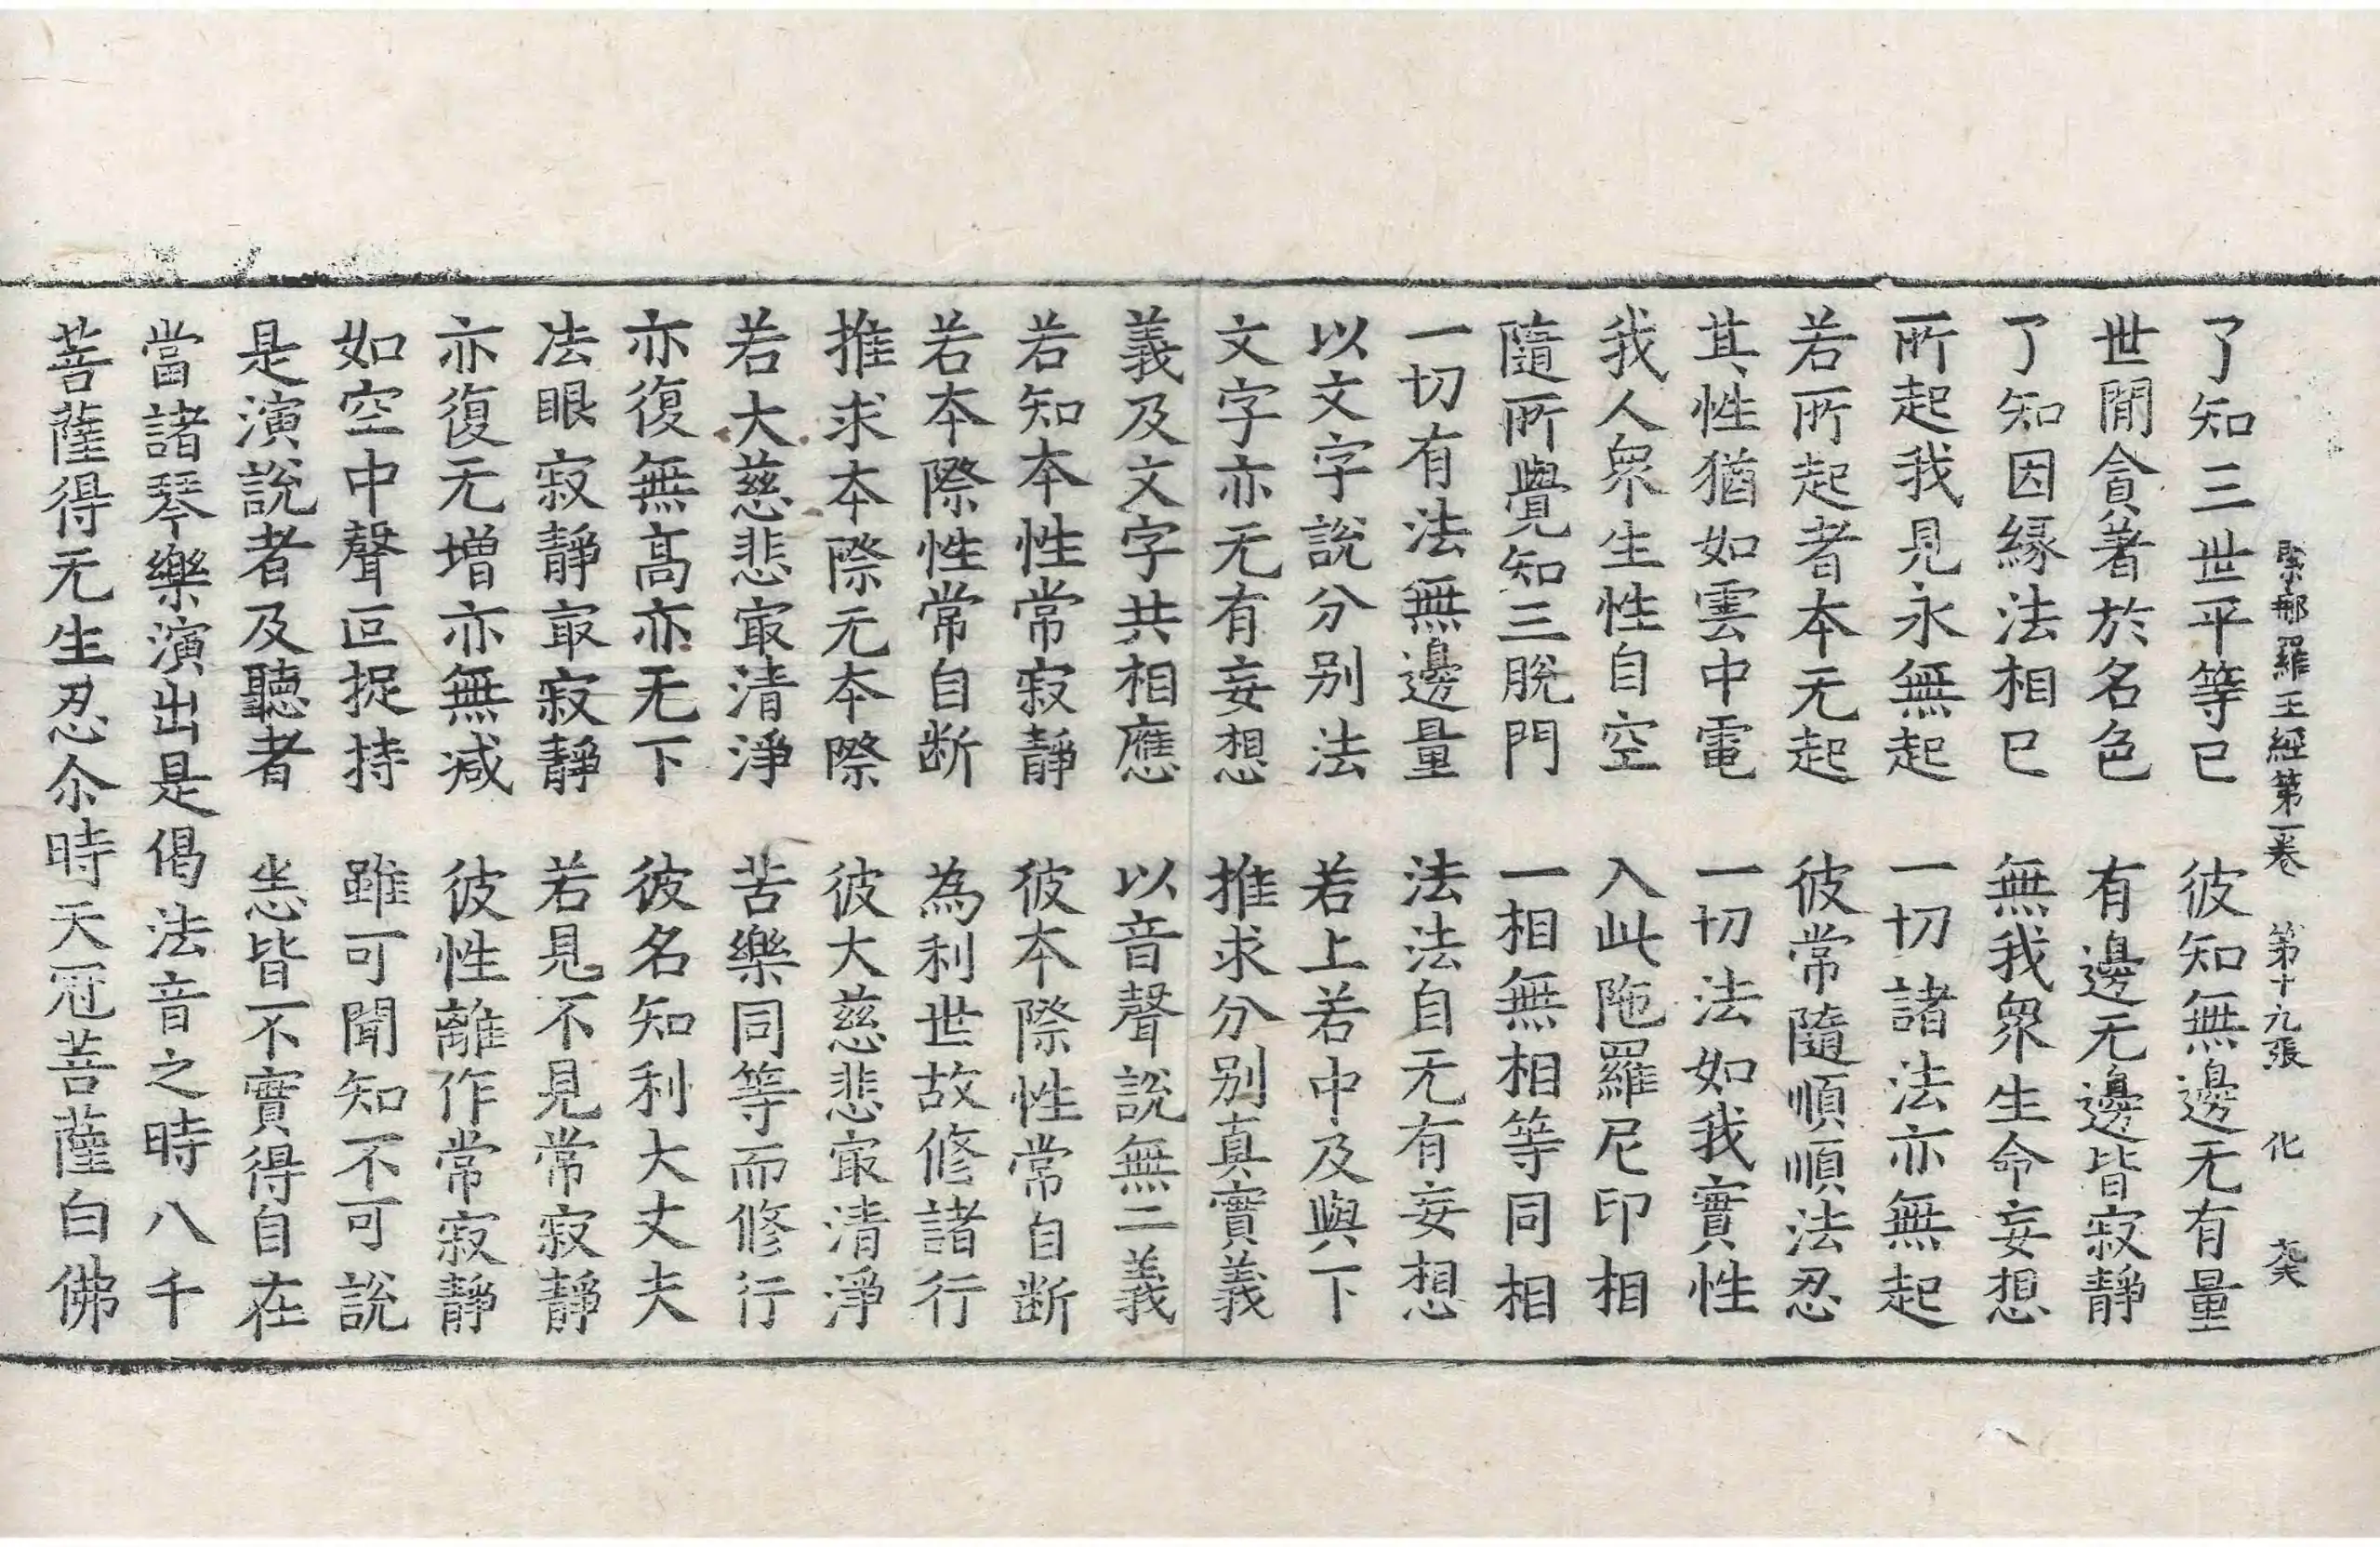 緊那羅王經第一卷 第十九張 化
了知三世平等已 彼知無邊无有量
世間貪著於名色 有邊无邊皆寂靜
了知因緣法相已 無我衆生命妄想
所起我見永無起 一切諸法亦無起
若所起者本无起 彼常隨順順法忍
其性猶如雲中電 一切法如我實性
我人衆生性自空 入此陁羅尼印相
隨所覺知三脫門 一相無相等同相
一切有法無邊量 法法自无有妄想
以文字說分别法 若上若中及與下
文字亦无有妄想 推求分别真實義
義及文字共相應 以音聲說無二義
若知本性常寂靜 彼本際性常自断
若本際性常自断 為利世故修諸行
推求本際无本際 彼大慈悲冣清淨
若大慈悲冣清淨 苦樂同等而修行
亦復無高亦无下 彼名知利大丈夫
法眼寂靜冣寂靜 若見不見常寂靜
亦復无增亦無減 彼性離作常寂靜
如空中聲叵捉持 雖可聞知不可說
是演說者及聽者 悉皆不實得自在
當諸琴樂演出是偈法音之時八千
菩薩得无生忍尒時天冠菩薩白佛